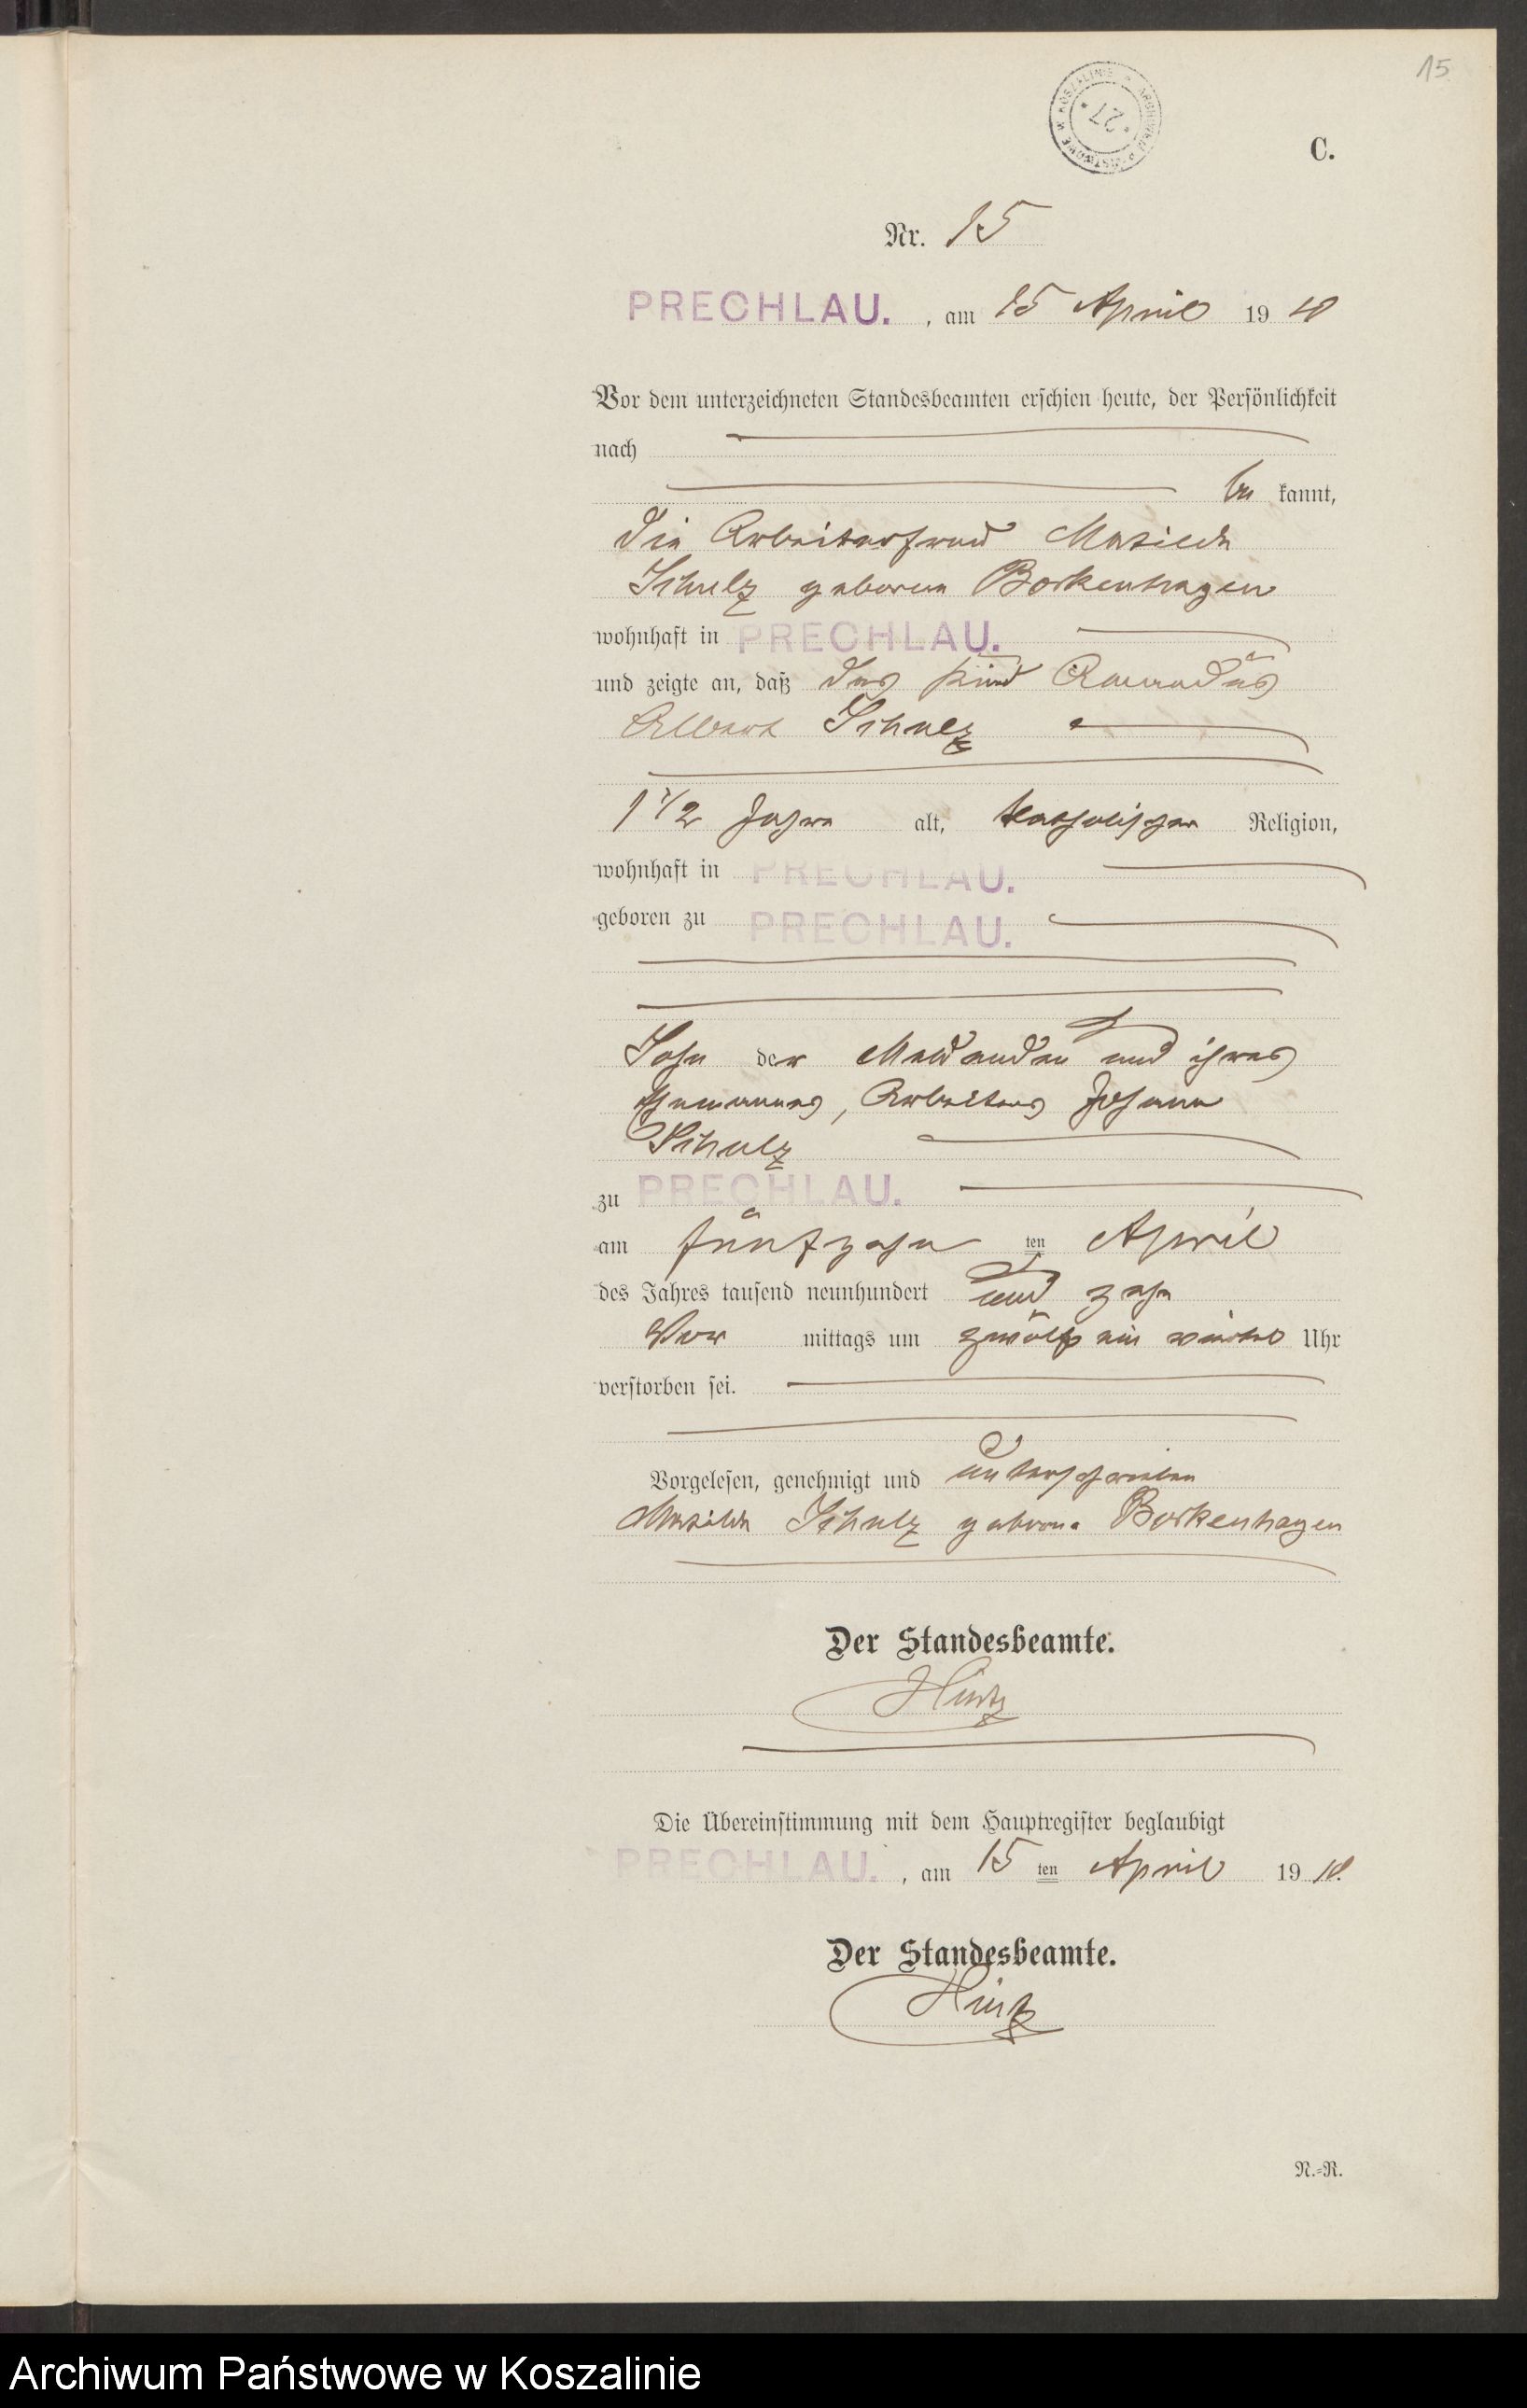 15
ARCHIWUM PAŃSTWOWE W KOSZALINIE * 27 *
C.
Nr. 15
PRECHLAU. , am 15 April 1910
Vor dem unterzeichneten Standesbeamten erschien heute, der Persönlichkeit
nach
be kannt,
die Arbeiterfrau Mathilde
Schulz geborene Borkenhagen
wohnhaft in PRECHLAU.
und zeigte an, daß das Kind
Albert Schulz
1 1/2 Jahre alt, katholischer Religion,
wohnhaft in PRECHLAU.
geboren zu PRECHLAU.
Sohn der Meldenden und ihres
Ehemannes, Arbeiters Johann
Schulz
zu PRECHLAU.
am fünfzehn ten April
des Jahres tausend neunhundert und zehn
Vor mittags um zwölf ein viertel Uhr
verstorben sei.
Vorgelesen, genehmigt und unterschrieben
Mathilde Schulz geborne Borkenhagen
Der Standesbeamte.
Hintz
Die Übereinstimmung mit dem Hauptregister beglaubigt
PRECHLAU. , am 15 ten April 1910.
Der Standesbeamte.
Hintz
N.=R.
Archiwum Państwowe w Koszalinie